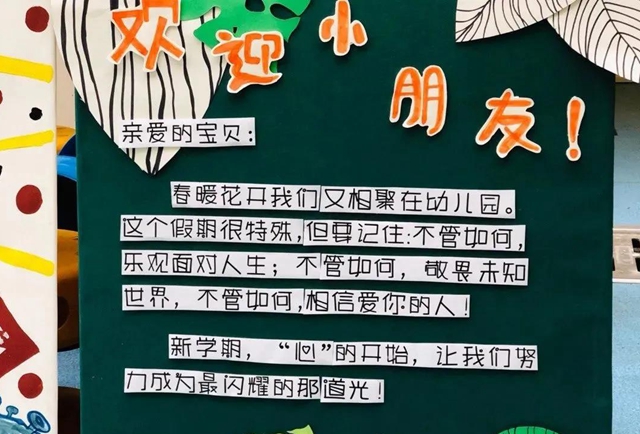 欢迎小
朋友！
亲爱的宝贝：
春暖花开我们又相聚在幼儿园。
这个假期很特殊,但要记住:不管如何,
乐观面对人生；不管如何，敬畏未知
世界，不管如何,相信爱你的人！
新学期，“心”的开始，让我们努
力成为最闪耀的那道光！